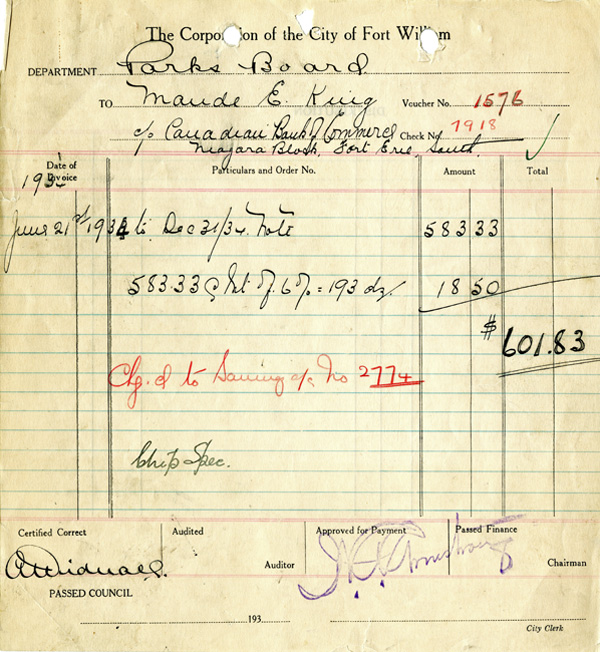 The Corporation of the City of Fort William
DEPARTMENT Parks Board
TO Maude E. King Voucher No. 1576
c/o Canadian Bank of Commerce Check No. 7918
Niagara Block, Fort Erie, South.
Date of Invoice Particulars and Order No. Amount Total
1934
June 21st 1934 to Dec 31/34 Note 583 33
583.33 @ Int of 6% = 193 ds/ 18 50
$ 601.83
Chg. d to a/c No 2774
Spec.
Certified Correct Audited Approved for Payment Passed Finance
Auditor Armstrong Chairman
PASSED COUNCIL
193
City Clerk